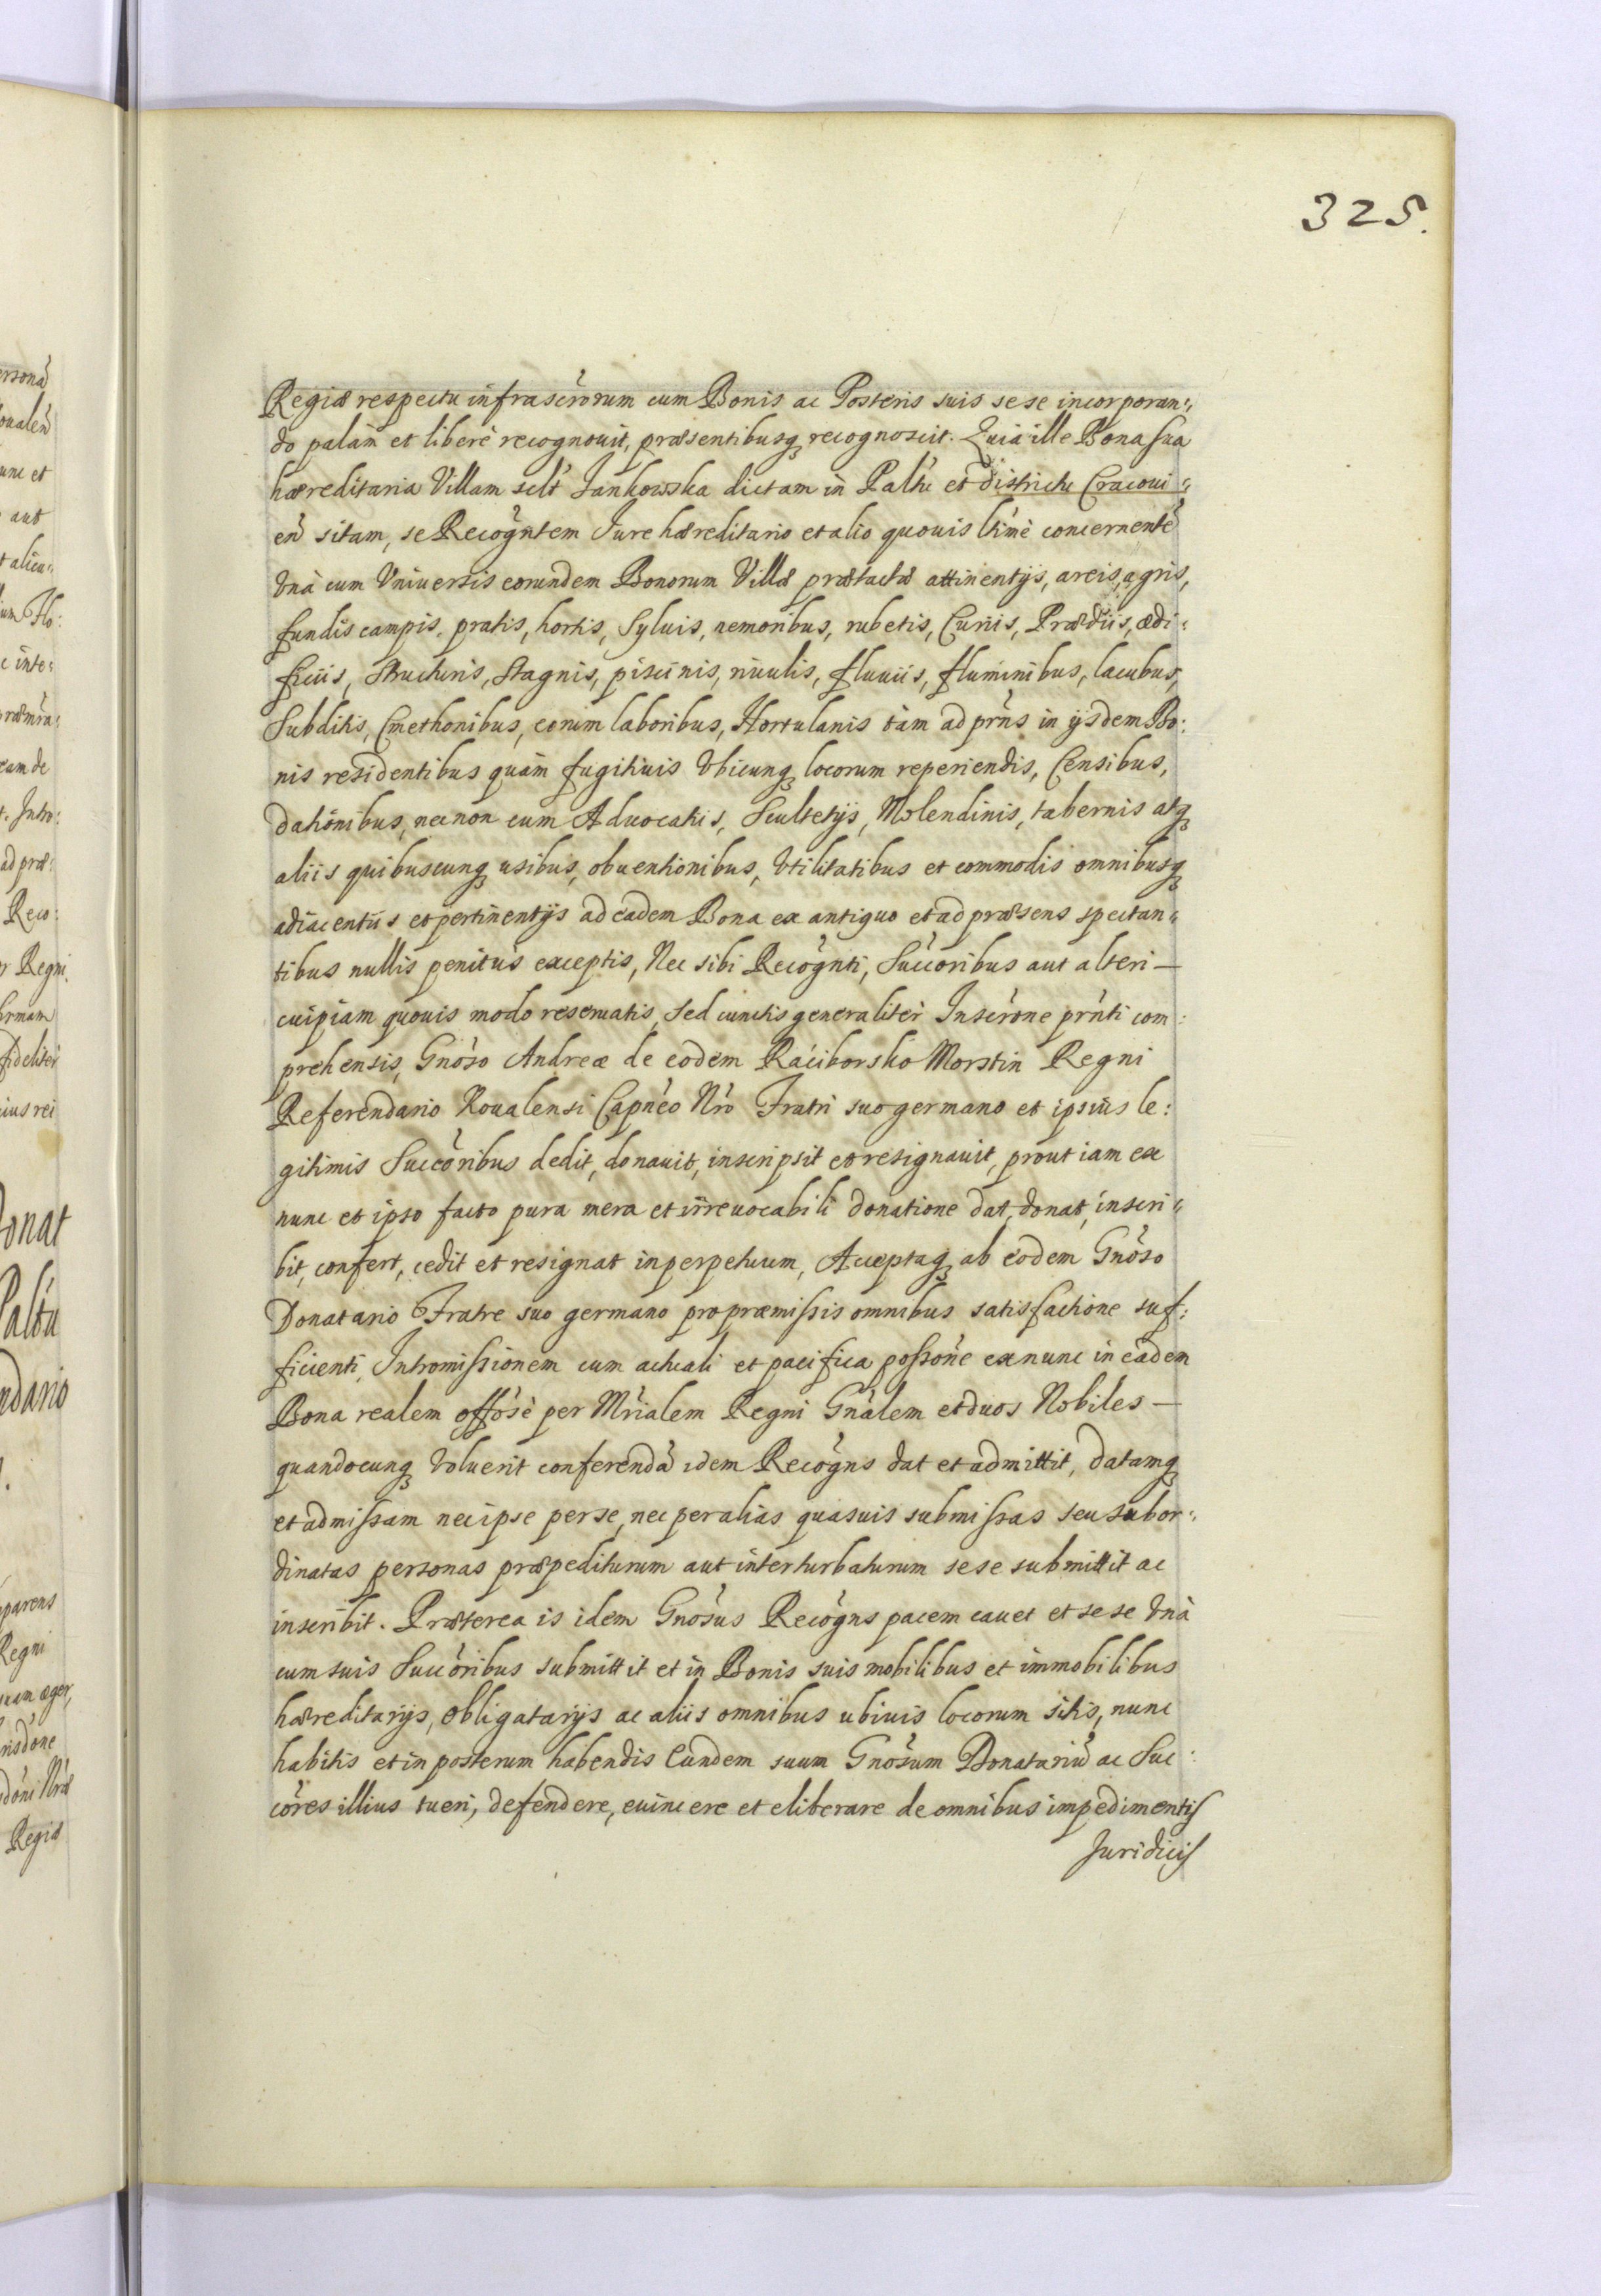 325.
Regiæ respectu infrascrõrum cum Bonis ac Posteris suis sese incorporan„
do palàm et liberè recognouit, præsentibusq recognoscit. Quia ille Bona sua
hæreditaria Villam sclt Jankowska dictam in Paltu et districtu Cracoui„
eñ sitam, se Recogñtem Jure hæreditario et alio quouis ltimè concernentẽ
Vnà cum Vniuersis eorundem Bonorum Villæ prætactæ attinentijs, areis, agris,
fundis campis, pratis, hortis, Syluis, nemoribus, rubetis, Curiis, Prædiis, ædi:
ficiis, Structuris, Stagnis, piscinis, riuulis, fluuiis, fluminibus, lacubus,
Subditis, Cmethonibus, eorum laboribus, Hortulanis tàm ad prñs in ijsdem Bo:
nis residentibus quàm fugitiuis Vbicunq locorum reperiendis, Censibus,
dationibus, necnon cum Aduocatis, Scultetijs, Molendinis, tabernis atq
aliis quibuscunq usibus, obuentionibus, Vtilitatibus et commodis omnibusq
adiacentiis et pertinentijs ad eadem Bona ex antiquo et ad præsens spectan„
tibus nullis penitùs exceptis, Nec sibi Recogñti, Succõribus aut alteri —
cuipiam quouis modo reseruatis, sed cunctis generaliter Inscrõne prñti com:
prehensis, Gnõso Andreæ de eodem Raciborsko Morstin Regni
Referendario Koualensi Capnẽo Nrõ Fratri suo germano et ipsius le:
gitimis Succõribus dedit, donauit, inscripsit et resignauit, prout iam ex
nunc et ipso facto pura mera et irreuocabili donatione dat, donat, inscri„
bit, confert, cedit et resignat in perpetuum, Acceptaq ab eodem Gnõso
Donatario Fratre suo germano pro præmissis omnibus satisfactione suf:
ficienti, Intromissionem cum actuali et pacifica possoñe ex nunc in eadem
Bona realem offõsè per Mrialem Regni Gnãlem et duos Nobiles —
quandocunq Voluerit conferendã idem Recogñs dat et admittit, datamq
et admissam nec ipse per se, nec per alias quasuis submissas seu subor:
dinatas personas præpediturum aut interturbaturum sese submittit ac
inscribit. Præterea is idem Gnõsus Recogñs pacem cauet et sese Vnà
cum suis Succõribus submittit et in Bonis suis mobilibus et immobilibus
hæreditarijs, obligatarijs ac aliis omnibus ubiuis locorum sitis, nunc
habitis et in posterum habendis Eundem suum Gnõsum Donatariũ ac Suc:
cõres illius tueri, defendere, euincere et eliberare de omnibus impedimentis
Juridicis